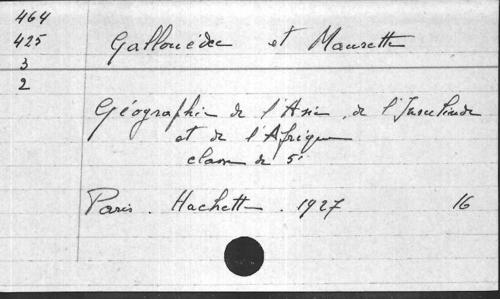 464
425
3
2
Gallouédec et Maurette
Géographie de l'Asie, de l'Insulinde
et de l'Afrique
classe de 5e
Paris. Hachette. 1927 16